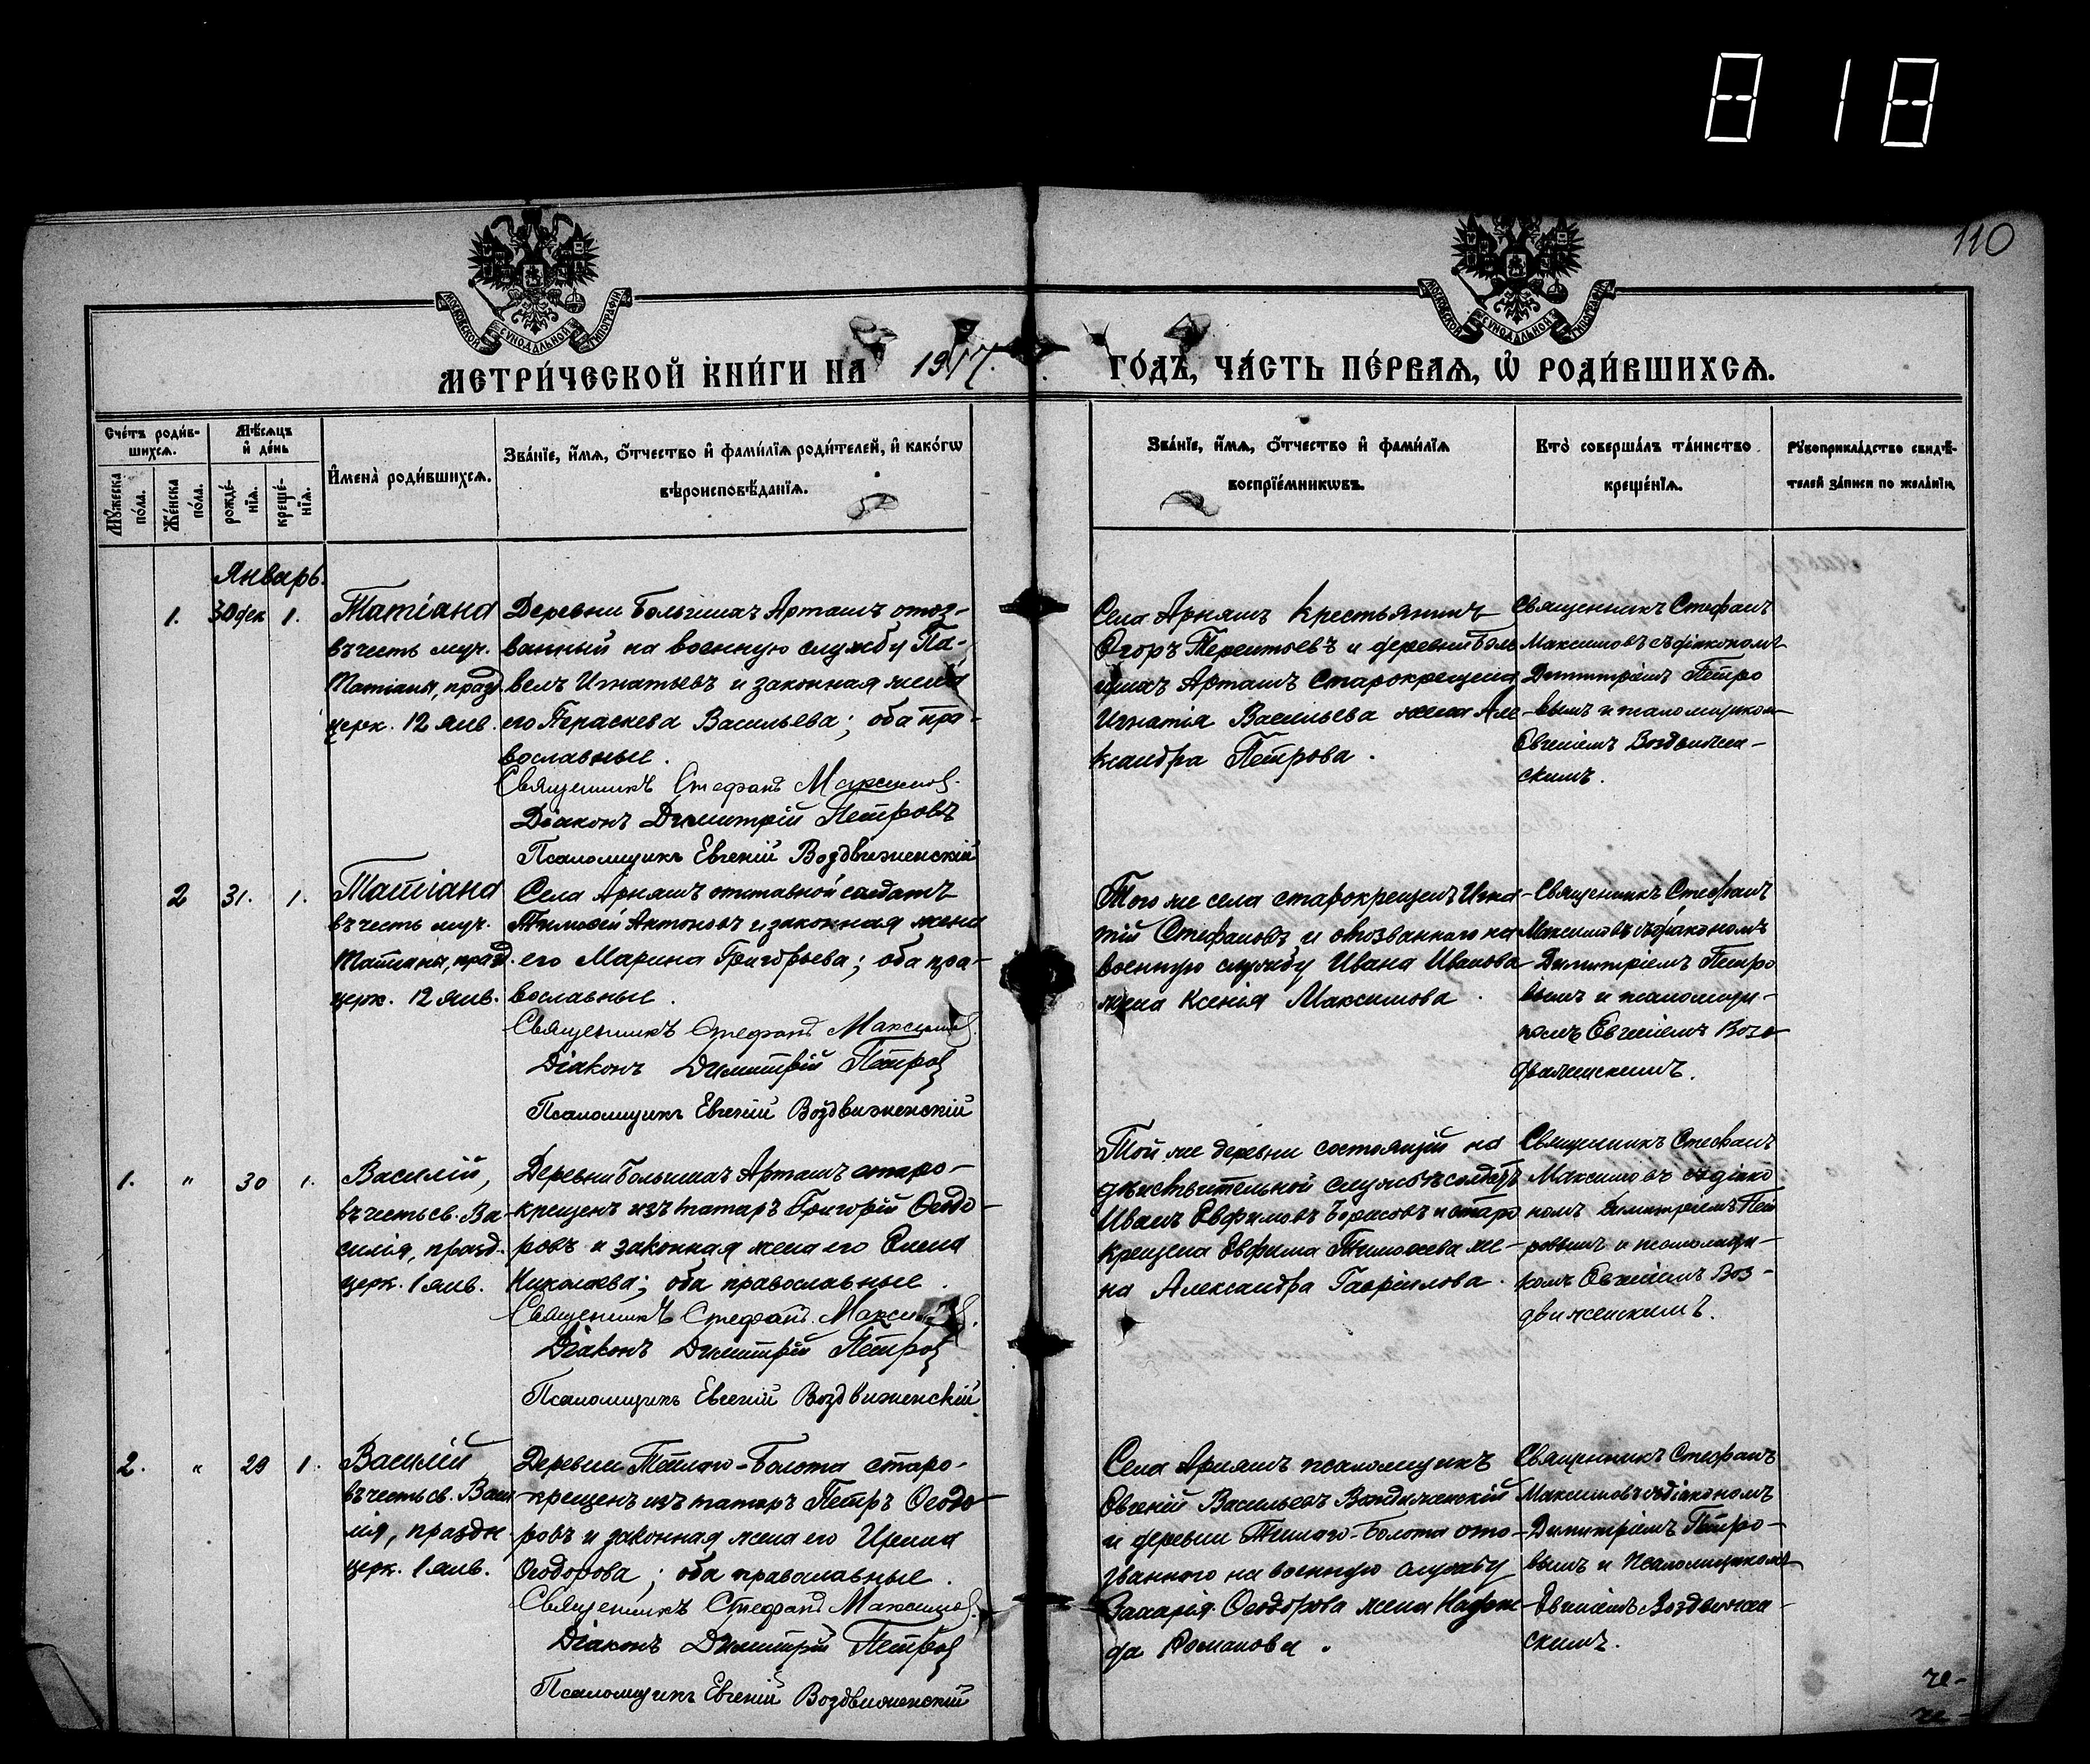 818
110
МОСКОВСКОЙ СѴНОДАЛЬНОЙ ТИПОГРАФІИ.
МОСКОВСКОЙ СѴНОДАЛЬНОЙ ТИПОГРАФІИ.
МЕТРИ́ЧЕСКОЙ КНИ́ГИ НА 1917.
ГО́ДЪ, ЧА́СТЬ ПЕ́РВАѦ, Ѡ҆ РОДИ́ВШИХСѦ.
Сче́тъ роди́в-
шихсѧ.
Мꙋ́жеска по́ла.
Же́нска по́ла.
Мѣ́сѧцъ
и҆ де́нь
рожде́-
нїѧ.
креще́-
нїѧ.
И҆мена̀ роди́вшихсѧ.
Зва́нїе, и҆́мѧ, ѻ҆́тчество и҆ фами́лїѧ роди́телей, и҆ како́гѡ
вѣроисповѣ́данїѧ.
Зва́нїе, и҆́мѧ, ѻ҆́тчество и҆ фами́лїѧ
воспрїе́мникѡвъ.
Кто̀ соверша́лъ та́инство
креще́нїѧ.
Рꙋкоприкла́дство свидѣ́-
телей за́писи по жела́нїю.
Январь.
1. 30 дек 1.
Татіана
въ честь муч.
Татіаны, празд.
церк. 12 янв.
Деревни Большихъ Арташъ отоз-
ванный на военную службу Па-
велъ Игнатьевъ и законная жена
его Параскева Васильева; оба пра-
вославные.
Священникъ Стефанъ Максимов.
Діаконъ Димитрій Петровъ
Псаломщикъ Евгеній Воздвиженскій
Села Арняшъ крестьянинъ
Егоръ Терентьевъ и деревни Боль
шихъ Арташъ старокрещена
Игнатія Васильева жена Але-
ксандра Петрова.
Священникъ Стефанъ
Максимовъ съ діакономъ
Димитріемъ Петро
вымъ и псаломщиком
Евгеніемъ Воздвижен-
скимъ.
2 31. 1.
Татіана
въ честь муч.
Татіаны, празд.
церк. 12 янв.
Села Арняшъ отставной солдатъ
Тимоѳей Антоновъ и законная жена
его Марина Григорьева; оба пра-
вославные.
Священникъ Стефанъ Максимов.
Діаконъ Димитрій Петров
Псаломщикъ Евгеній Воздвиженскій
Того же села старокрещенъ Игна-
тій Стефановъ и отозваннаго на
военную службу Ивана Иванова
жена Ксенія Максимова.
Священникъ Стефанъ
Максимовъ съ діакономъ
Димитріемъ Петро
вымъ и псаломщи-
комъ Евгеніемъ Возд-
виженскимъ.
1. " 30 1.
Василій,
въ честь св. Ва-
силія, празд.
церк. 1 янв.
Деревни Большихъ Арташъ старо-
крещенъ изъ татаръ Григорій Ѳеодо-
ровъ и законная жена его Елена
Николаева; оба православные.
Священникъ Стефанъ Максимов.
Діаконъ Димитрій Петров
Псаломщикъ Евгеній Воздвиженскій
Той же деревни состоящій на
дѣйствительной службѣ солдатъ
Иванъ Евфимовъ Борисовъ и старо
крещена Евфима Тимоѳеева же-
на Александра Гавріилова.
Священникъ Стефанъ
Максимовъ съ діако
номъ Димитріемъ Пет
ровымъ и псаломщи-
комъ Евгеніемъ Воз-
движенскимъ.
2. " 29 1.
Василій
въ честь св. Васи
лія, праздн
церк. 1 янв.
Деревни Теплаго-Болота старо-
крещенъ изъ татаръ Петръ Ѳеодо-
ровъ и законная жена его Ирина
Ѳеодорова; оба православные.
Священникъ Стефанъ Максимов.
Діаконъ Димитрій Петров
Псаломщикъ Евгеній Воздвиженскій
Села Арняшъ псаломщикъ
Евгеній Васильевъ Воздвиженскій
и деревни Теплаго-Болота ото-
званнаго на военную службу
Захарія Ѳеодорова жена
Романова.
Священникъ Стефанъ
Максимовъ съ діакономъ
Димитріемъ Петро-
вымъ и псаломщикомъ
Евгеніемъ Воздвижен-
скимъ.